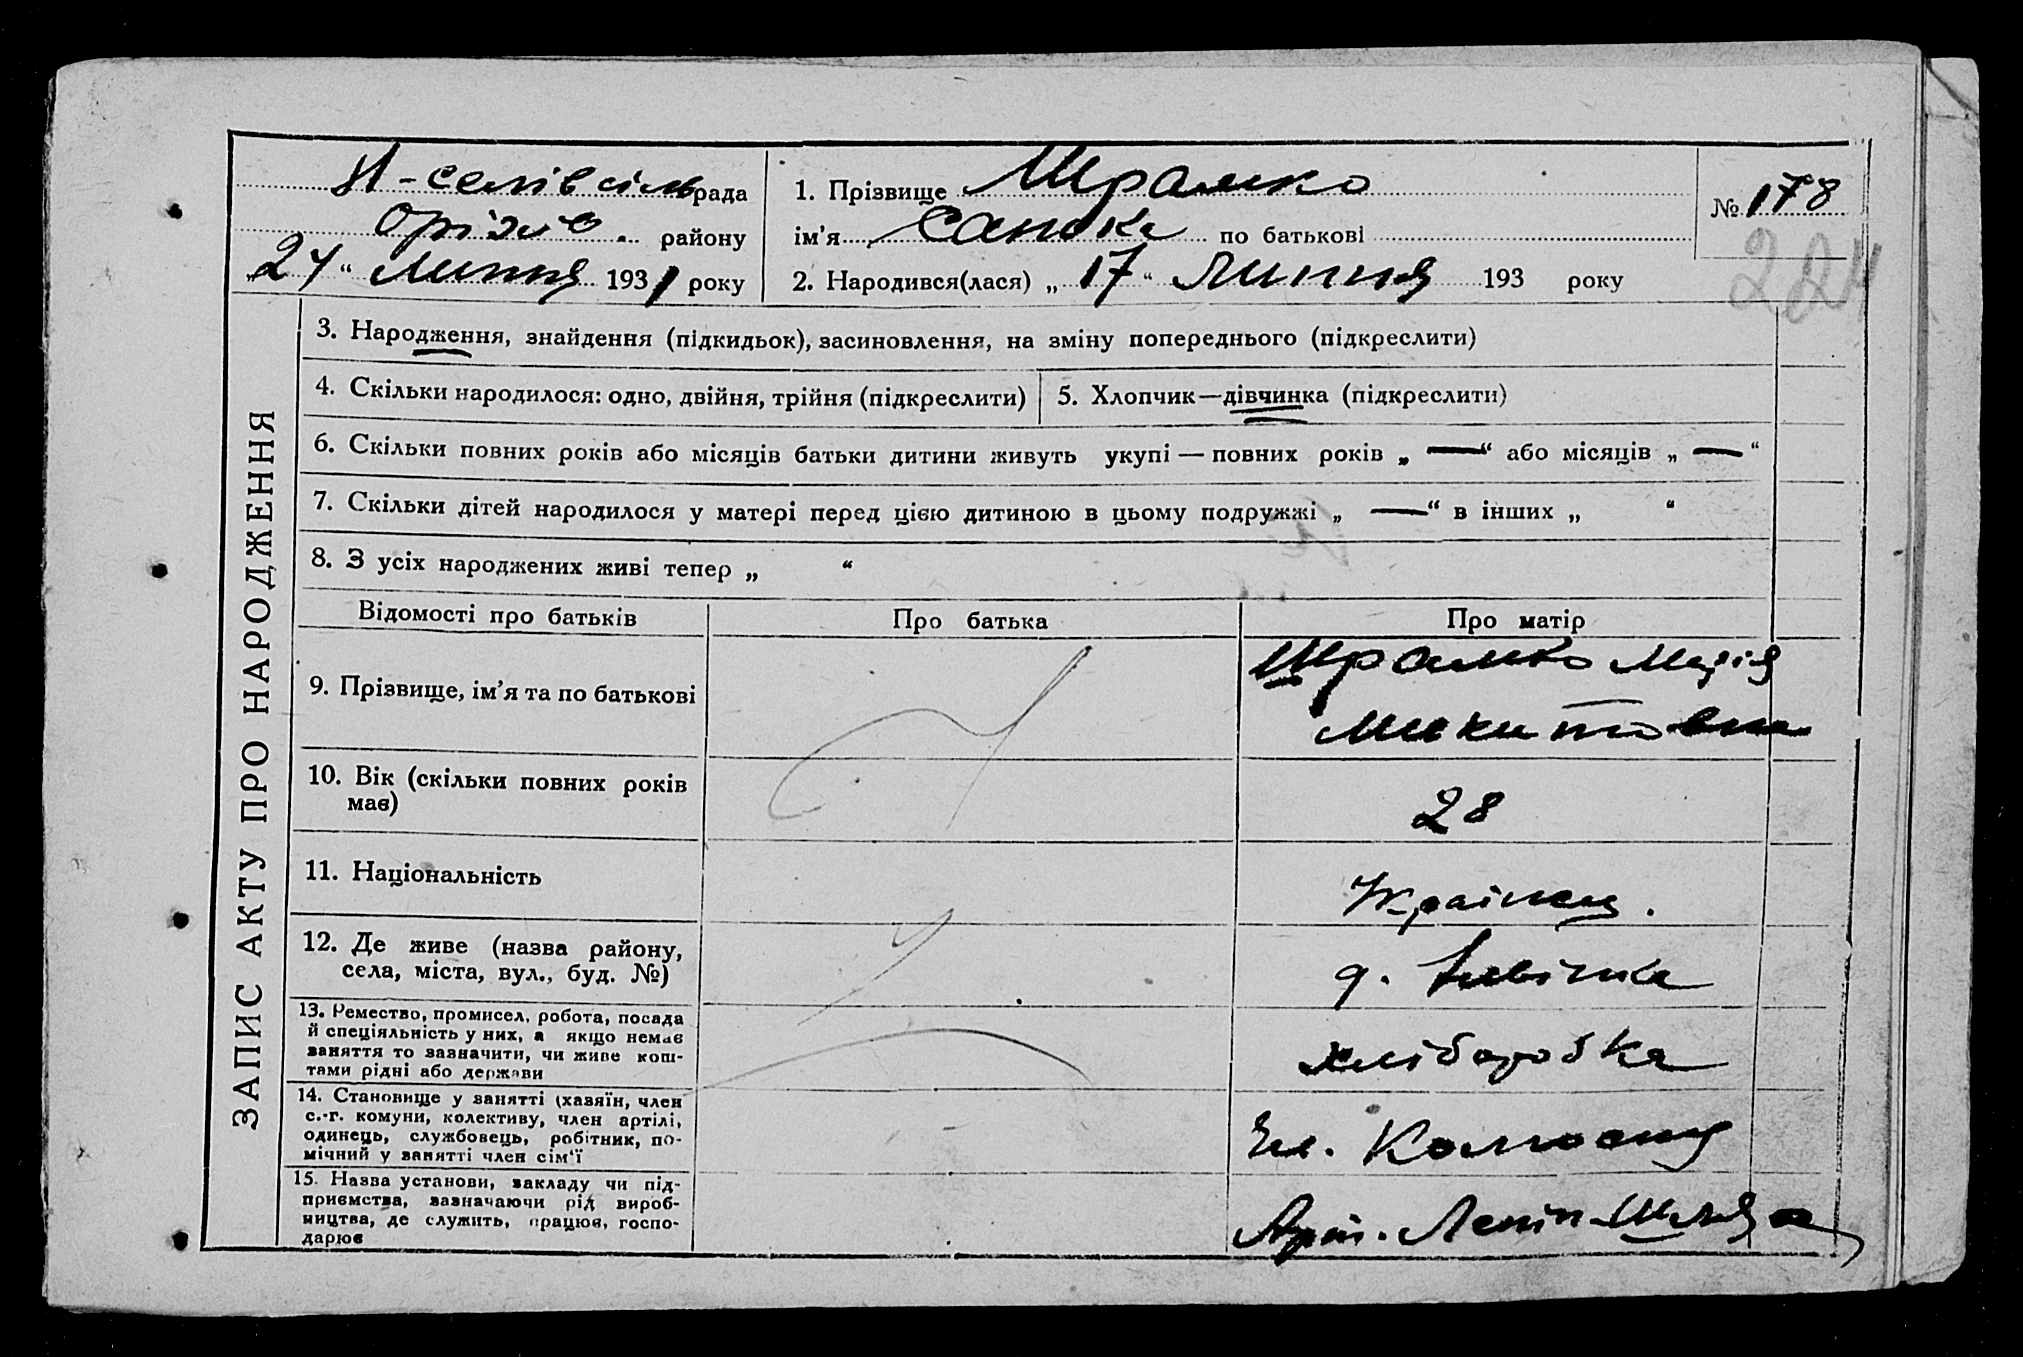 Н-селів сільрада
Оріхів. району
„24“ липня 1931 року
1. Прізвище Шрамко
ім'я Санька по батькові
2. Народився(лася) „17“ Липня 193 року
№ 178
224
ЗАПИС АКТУ ПРО НАРОДЖЕННЯ
3. Народження, знайдення (підкидьок), засиновлення, на зміну попереднього (підкреслити)
4. Скільки народилося: одно, двійня, трійня (підкреслити)
5. Хлопчик—дівчинка (підкреслити)
6. Скільки повних років або місяців батьки дитини живуть укупі — повних років „ — “ або місяців „ — “
7. Скільки дітей народилося у матері перед цією дитиною в цьому подружжі „ — “ в інших „ “
8. З усіх народжених живі тепер „ “
Відомості про батьків
Про батька
Про матір
9. Прізвище, ім'я та по батькові
Шрамко Марія
Микитовна
10. Вік (скільки повних років
має)
28
11. Національність
Українец.
12. Де живе (назва району,
села, міста, вул., буд. №)
13. Ремество, промисел, робота, посада
й спеціяльність у них, а якщо немає
заняття то зазначити, чи живе кош-
тами рідні або держави
хліборобка
14. Становище у занятті (хазяїн, член
с.-г. комуни, колективу, член артілі,
одинець, службовець, робітник, по-
мічний у занятті член сім'ї
Чл. Колгоспу
15. Назва установи, закладу чи під-
приємства, зазначаючи рід вироб-
ництва, де служить, працює, госпо-
дарює
Арт. Ленін Шлях